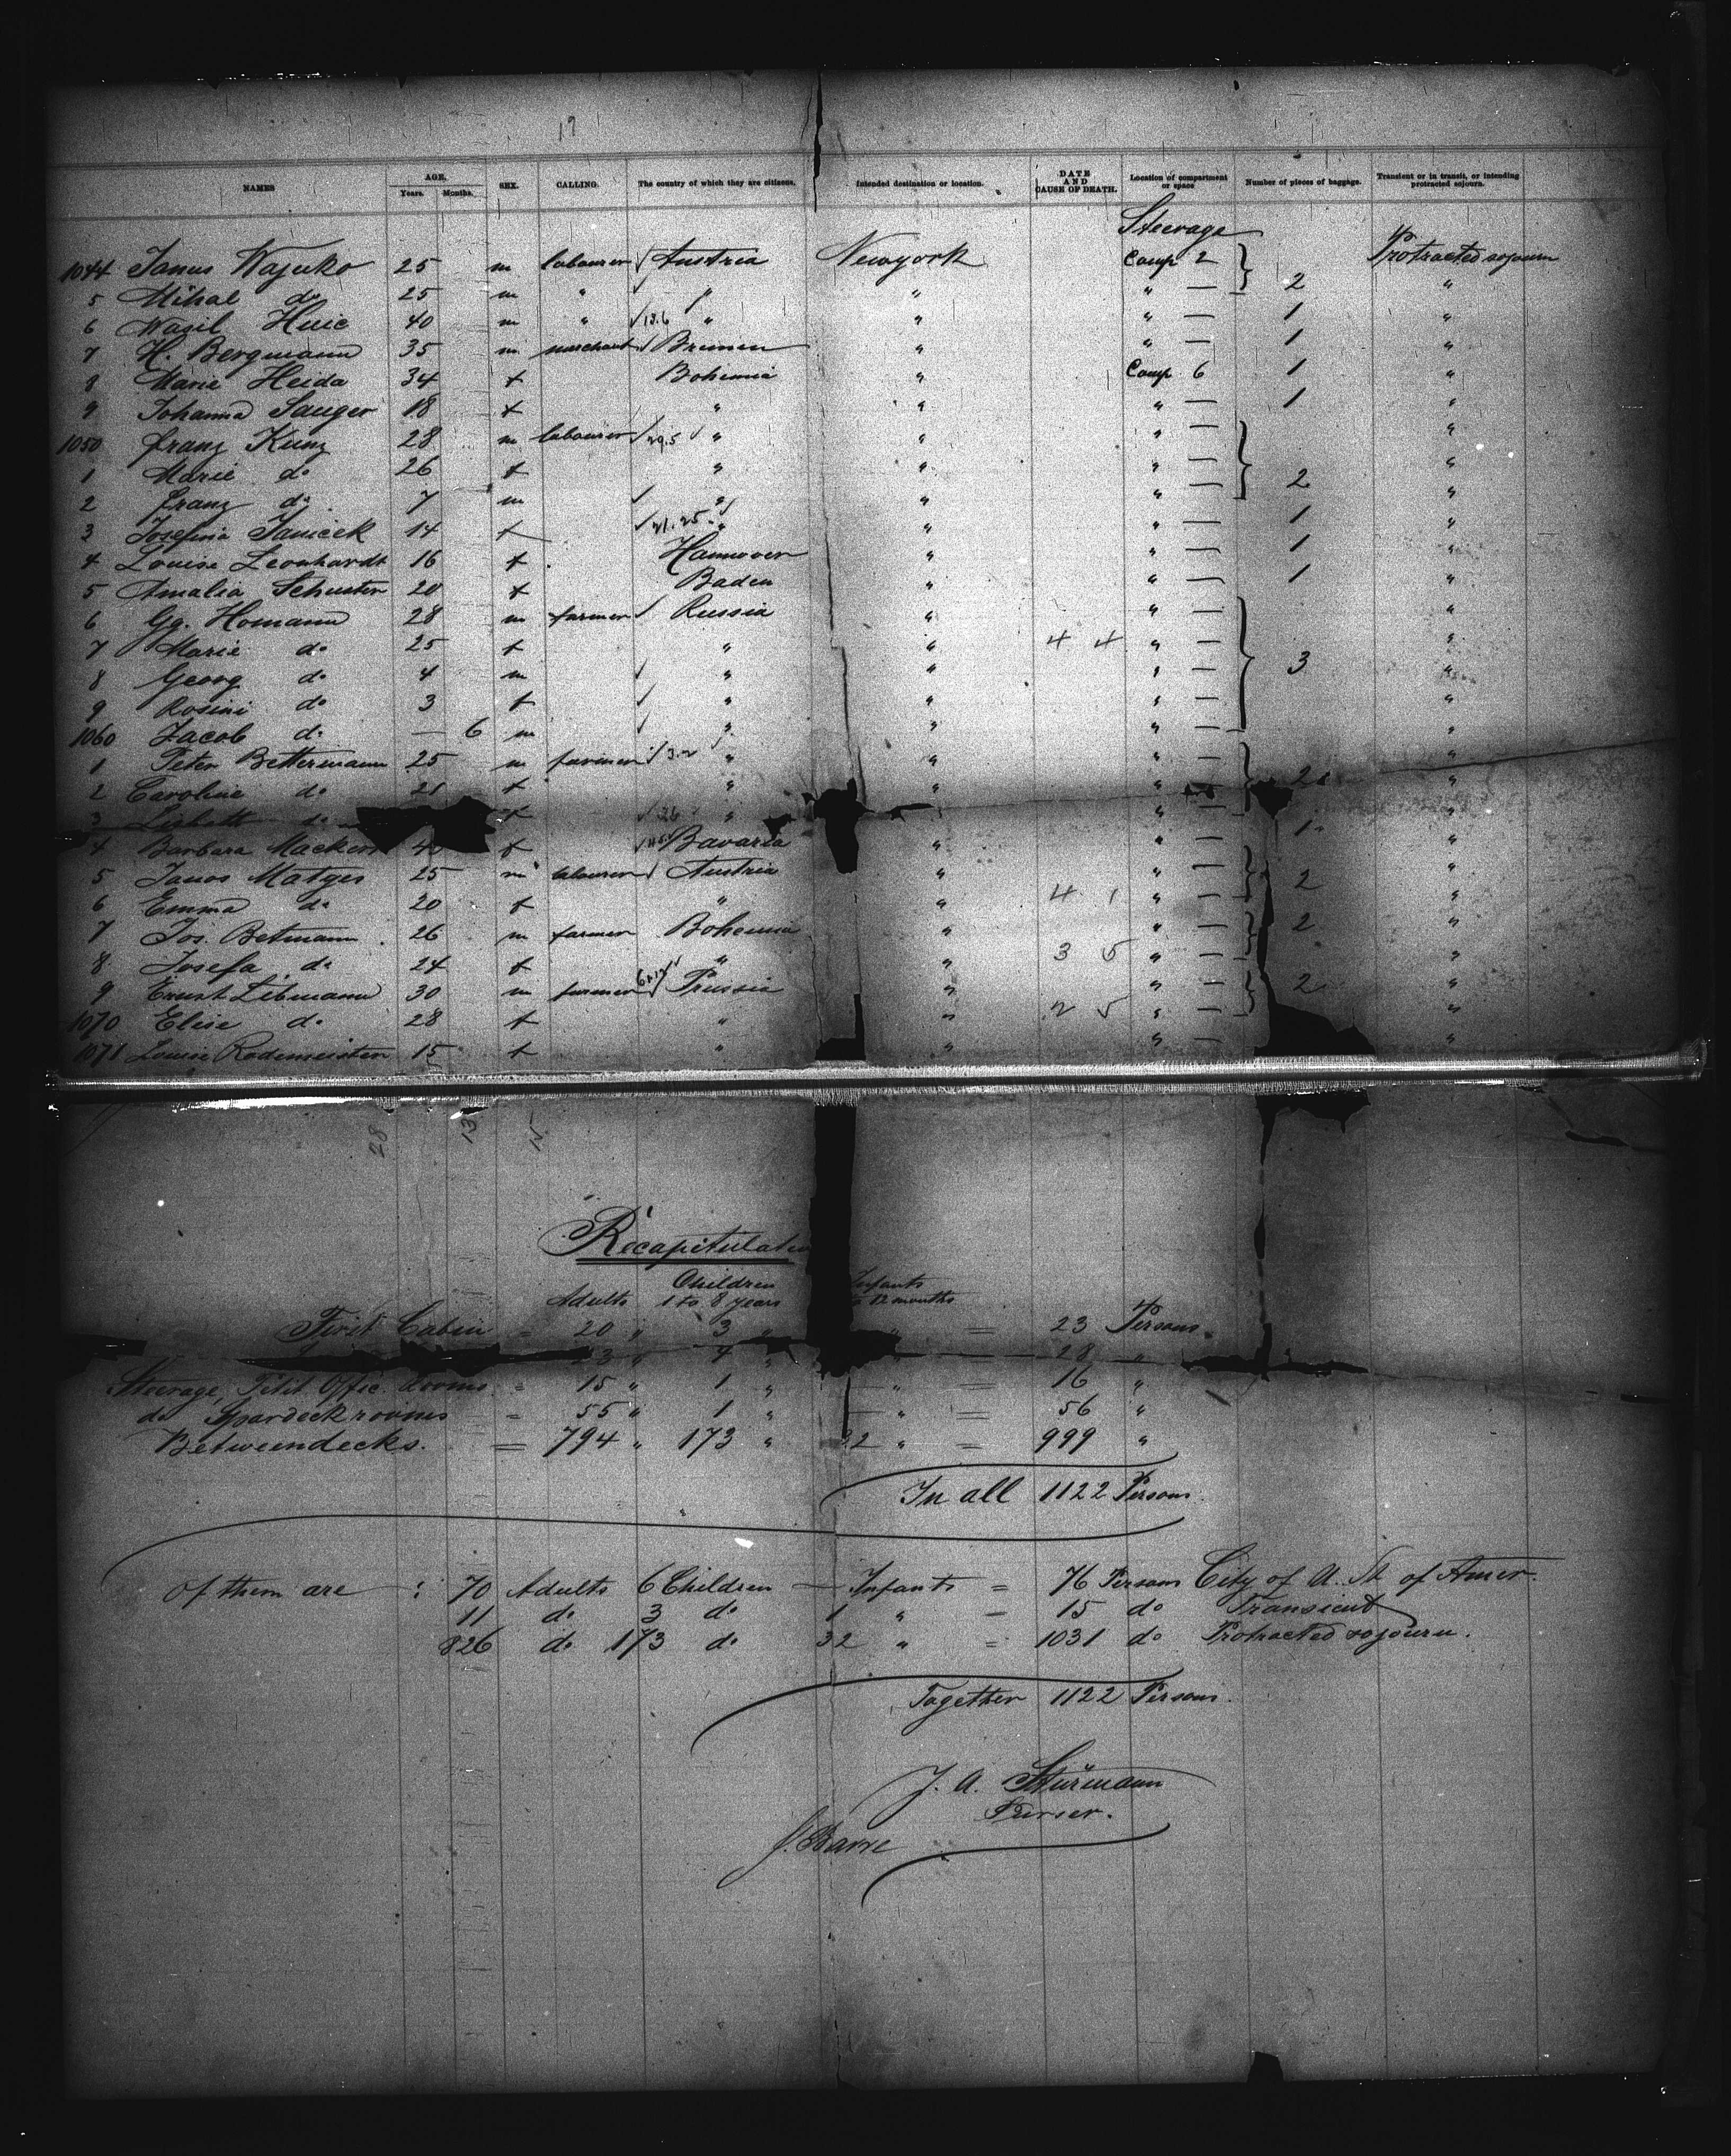 19
NAMES AGE. Years. Months. SEX. CALLING. The country of which they are citizens. Intended destination or location. DATE AND CAUSE OF DEATH. Location of compartment or space Number of pieces of baggage. Transient or in transit, or intending protracted sojourn.
Steerage
1044 Janus Wajuko 25 m labourer √ Austria Newyork Comp 2 Protracted sojourn
5 Mihal do 25 m " √ " " " — 2 "
6 Wasil Huic 40 m " √ 13.6 " " " — 1 "
7 H. Bergmann 35 m merchant √ Bremen " " — 1 "
8 Marie Heida 34 f Bohemia " Comp 6 1 "
9 Johanna Sauger 18 f " " " — 1 "
1050 Franz Kunz 28 m labourer √ 29.5 √ " " " — "
1 Marie do 26 f " " " — "
2 Franz do 7 m √ " " " — 2 "
3 Josefina Janicek 14 f √ 21.25. √ " " " — 1 "
4 Louise Leonhardt 16 f Hannover " " — 1 "
5 Amalia Schuster 20 f Baden " " — 1 "
6 Gg. Homann 28 m farmer √ Russia " " — "
7 Marie do 25 f " " 4 4 " — "
8 Georg do 4 m √ " " " — 3 "
9 Rosini do 3 f √ " " " — "
1060 Jacob do — 6 m √ " " " — "
1 Peter Bettermann 25 m farmer √ 3.2 " " " — "
2 Caroline do 21 f " " " 2 "
3 Lisbeth do f √ 26 " "
4 Barbara Mackert f √ Bavaria " " — 1 "
5 Janos Matges 25 m labourer √ Austria " " — "
6 Emma do 20 f " " 4 1 " — 2 "
7 Jos. Betmann 26 m farmer Bohemia " " — 2 "
8 Josefa do 24 f " " 3 5 " — "
9 Ernst Libmann 30 m farmer √ Prussia " " — 2 "
1070 Elise do 28 f " " 2 5 " — "
1071 Louise Rodemeister 15 f " " " — "
28 13 15
Recapitulatio
Adults Children 1 to 8 years Infants 12 months
First Cabin = 20 " 3 " " = 23 Persons.
23 " 4 " " = 28 "
Steerage, Petit Offic. Rooms = 15 " 1 " — " = 16 "
do Spardeckrooms = 55 " 1 " — " = 56 "
Betweendecks. = 794 " 173 " 32 " = 999 "
In all 1122 Persons.
Of them are : 70 Adults 6 Children — Infants = 76 Persons City of U. St. of Amer.
11 do 3 do 1 " = 15 do Transient
826 do 173 do 32 " = 1031 do Protracted sojourn.
Together 1122 Persons.
J. A. Stürmann
Purser.
J. Barre